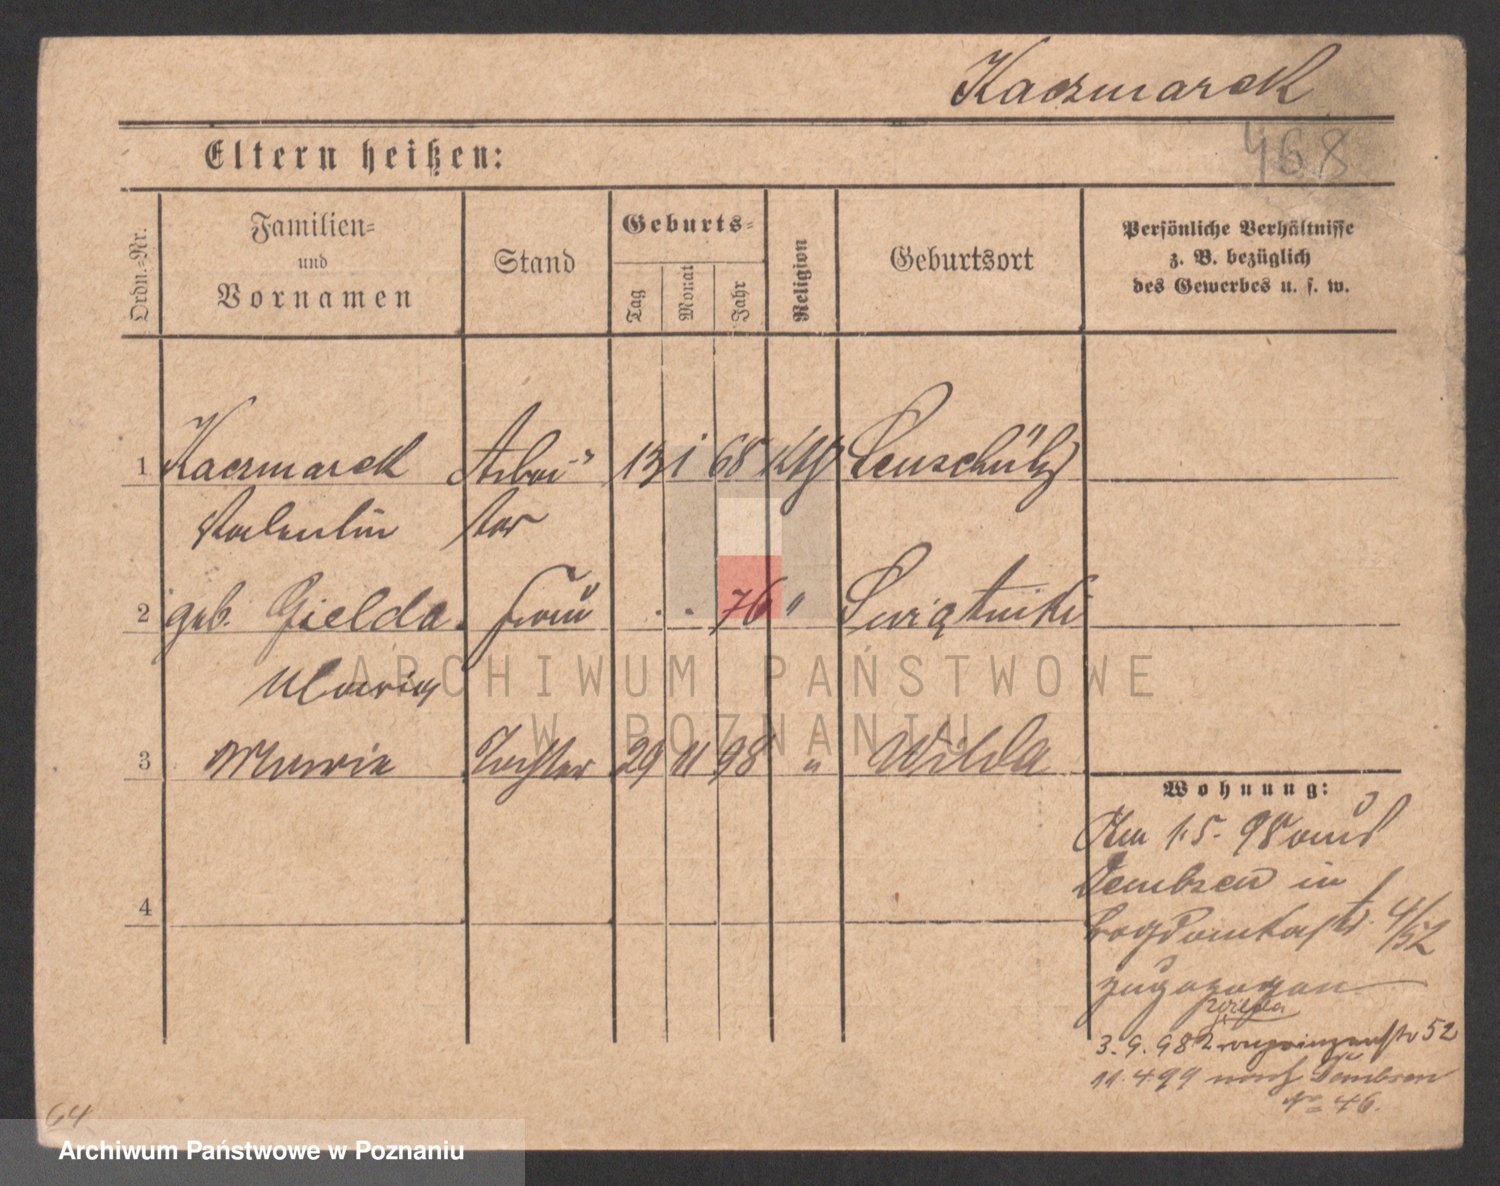 Kaczmarek
468
Eltern heißen:
Ordn.-Nr.
Familien-
und
Vornamen
Stand
Geburts-
Tag
Monat
Jahr
Religion
Geburtsort
Persönliche Verhältnisse
z. B. bezüglich
des Gewerbes u. s. w.
1 Kaczmarek Arbei- 13 1 68 Kth Lenschütz
Valentin ter
2 geb. Gielda Frau . . 76 " Swiątniki
Maria
3 Marie Tochter 29 11 98 " Wilda
4
Wohnung:
Am 1.5. 98 aus
Dembsen in
4/52
zugezogen
Wilda
3.9.98 Kronprinzenstr 52
11.4 99 nach Dembsen
No 46.
64
ARCHIWUM PAŃSTWOWE
W POZNANIU
Archiwum Państwowe w Poznaniu